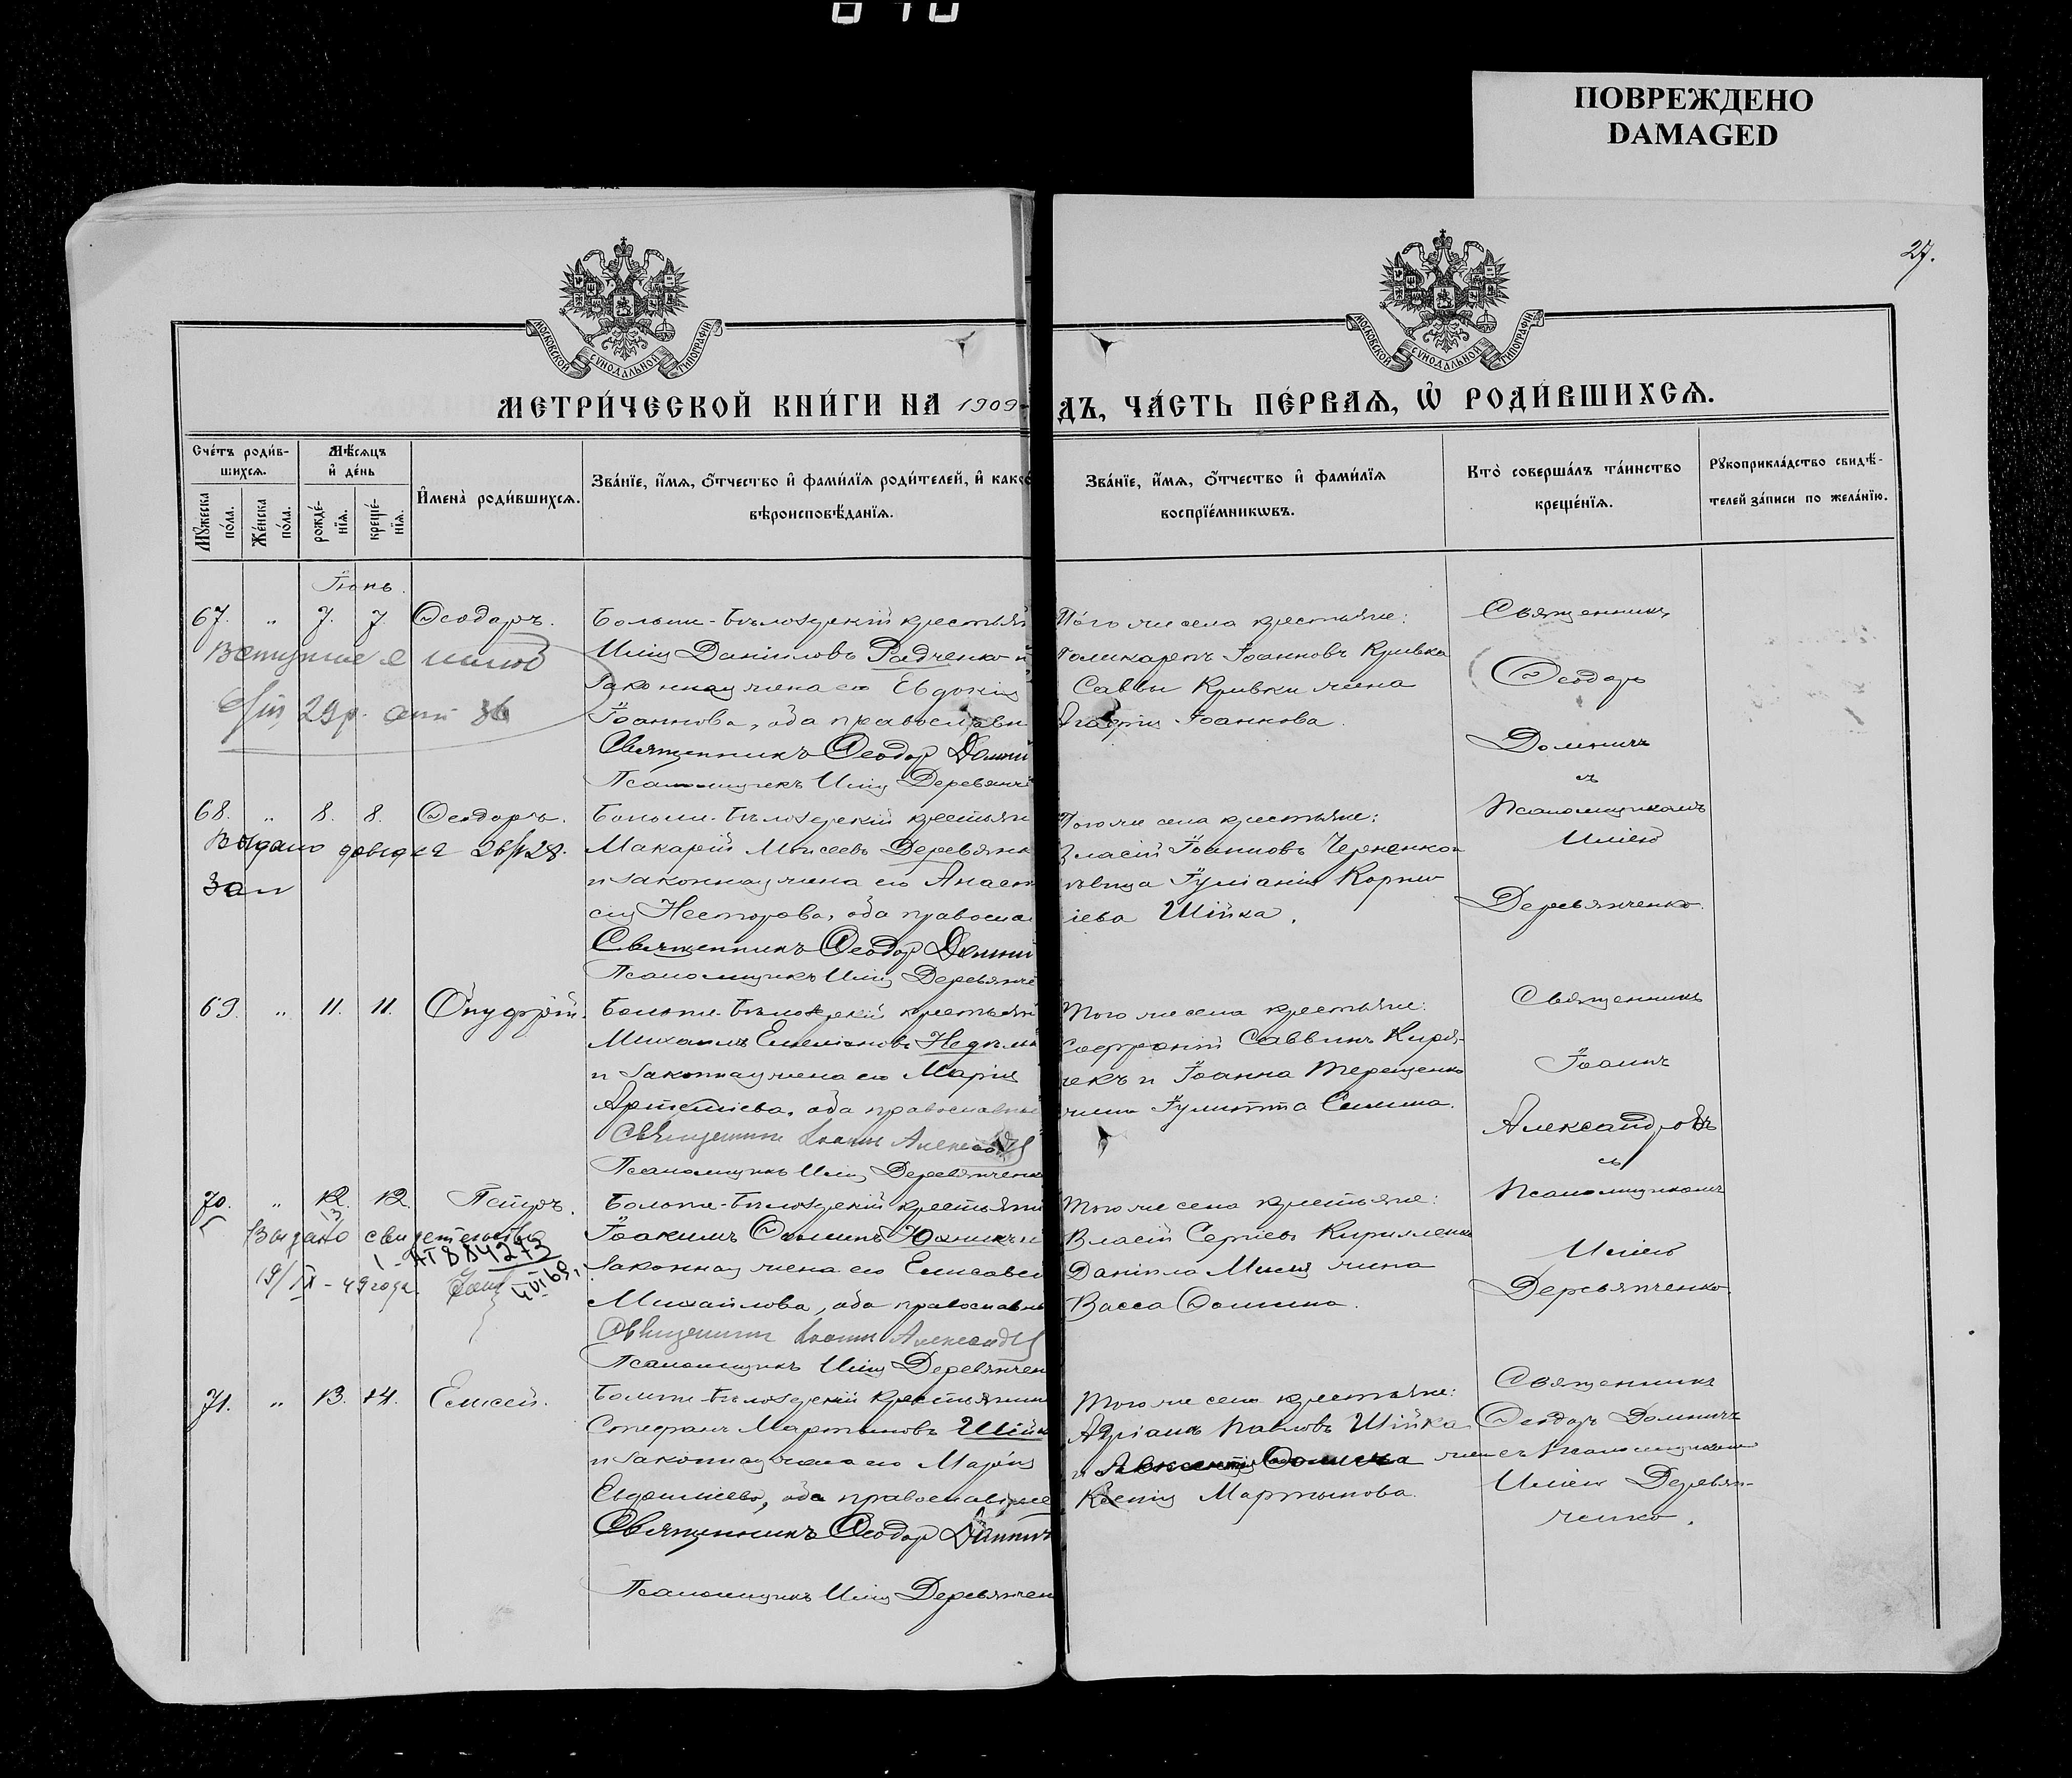 ПОВРЕЖДЕНО
DAMAGED
27.
МОСКОВСКОЙ СѴНОДАЛЬНОЙ ТИПОГРАФІИ
МОСКОВСКОЙ СѴНОДАЛЬНОЙ ТИПОГРАФІИ
МЕТРИ́ЧЕСКОЙ КНИ́ГИ НА 1909
ДЪ, ЧА́СТЬ ПЕ́РВАѦ, Ѡ҆ РОДИ́ВШИХСѦ.
Сче́тъ роди́в-
шихсѧ.
Мꙋжеска по́ла.
Же́нска по́ла.
Мѣ́сѧцъ и҆ де́нь
рожде́-
нїѧ.
креще́-
нїѧ.
И҆мена̀ роди́вшихсѧ.
Зва́нїе, и҆́мѧ, ѻ҆́тчество и҆ фами́лїѧ роди́телей, и҆ како
вѣроисповѣ́данїѧ.
Зва́нїе, и҆́мѧ, ѻ҆́тчество и҆ фами́лїѧ
воспрїе́мникѡвъ.
Кто̀ соверша́лъ та́инство
креще́нїѧ.
Рꙋкоприкла́дство свидѣ́-
телей за́писи по жела́нїю.
Іюнь.
67. " 7. 7. Ѳеодоръ.
Больше-Бѣлозерскій крестьян
Илія Даніиловъ Радченко и
законная жена его Евдокія
Іоаннова, оба православн
Священникъ Ѳеодор Домни
Псаломщикъ Илія Деревянч
Того же села крестьяне:
Поликарпъ Іоанновъ Кривка
Саввы Кривки жена
Агафія Іоаннова.
Священникъ
Ѳеодоръ
Домничъ
съ
Псаломщикомъ
Иліею
Деревянченко.
68. " 8. 8. Ѳеодоръ.
Выдано довідка
Больше-Бѣлозерскій крестьян
Макарій Моисеевъ Деревянк
и законная жена его Анаст
сія Несторова, оба правосла
Священникъ Ѳеодор Домни
Псаломщикъ Илія Деревянче
Того же села крестьяне:
Власій Іоанновъ Черненко и
вдовица Іуліанія Корни
ліева Шійка.
69. " 11. 11. Онуфрій.
Больше-Бѣлозерскій крестьян
Михаилъ Емеліановъ Недѣлк
и законная жена его Марія
Артеміева, оба православны
Священникъ Іоанн Александ
Псаломщикъ Илія Деревянченк
Того же села крестьяне:
Софроній Саввинъ Киря-
чекъ и Іоанна Терещенко
жена Іулитта Сошина.
Священникъ
Іоаннъ
Александровъ
съ
Псаломщикомъ
Иліею
Деревянченко
70. " 12. 12. Петръ.
13
Выдано свидетельство
I-АТ 884273
19/IX-49 года.
Больше-Бѣлозерскій крестьянин
Іоакимъ Ѳоминъ Юхникъ и
законная жена его Елисаве
Михайлова, оба православн
Священникъ Іоанн Александ
Псаломщикъ Илія Деревянчен
Того же села крестьяне:
Власій Сергіевъ Кириленко
Даніила жена
Васса Ѳомина.
71. " 13. 14. Елисей.
Больше-Бѣлозерскій крестьянин
Стефанъ Мартиновъ Шійк
и законная жена его Марія
Евдокимова, оба православные
Священникъ Ѳеодор Домнич
Псаломщикъ Илія Деревянчен
Того же села крестьяне:
Адріанъ Павловъ Шійка
и жена
Ксенія Мартынова.
Священникъ
Ѳеодоръ Домничъ
съ Псаломщикомъ
Иліею Деревян-
ченко.